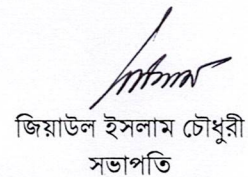 জিয়াউল ইসলাম চৌধুরী
সভাপতি